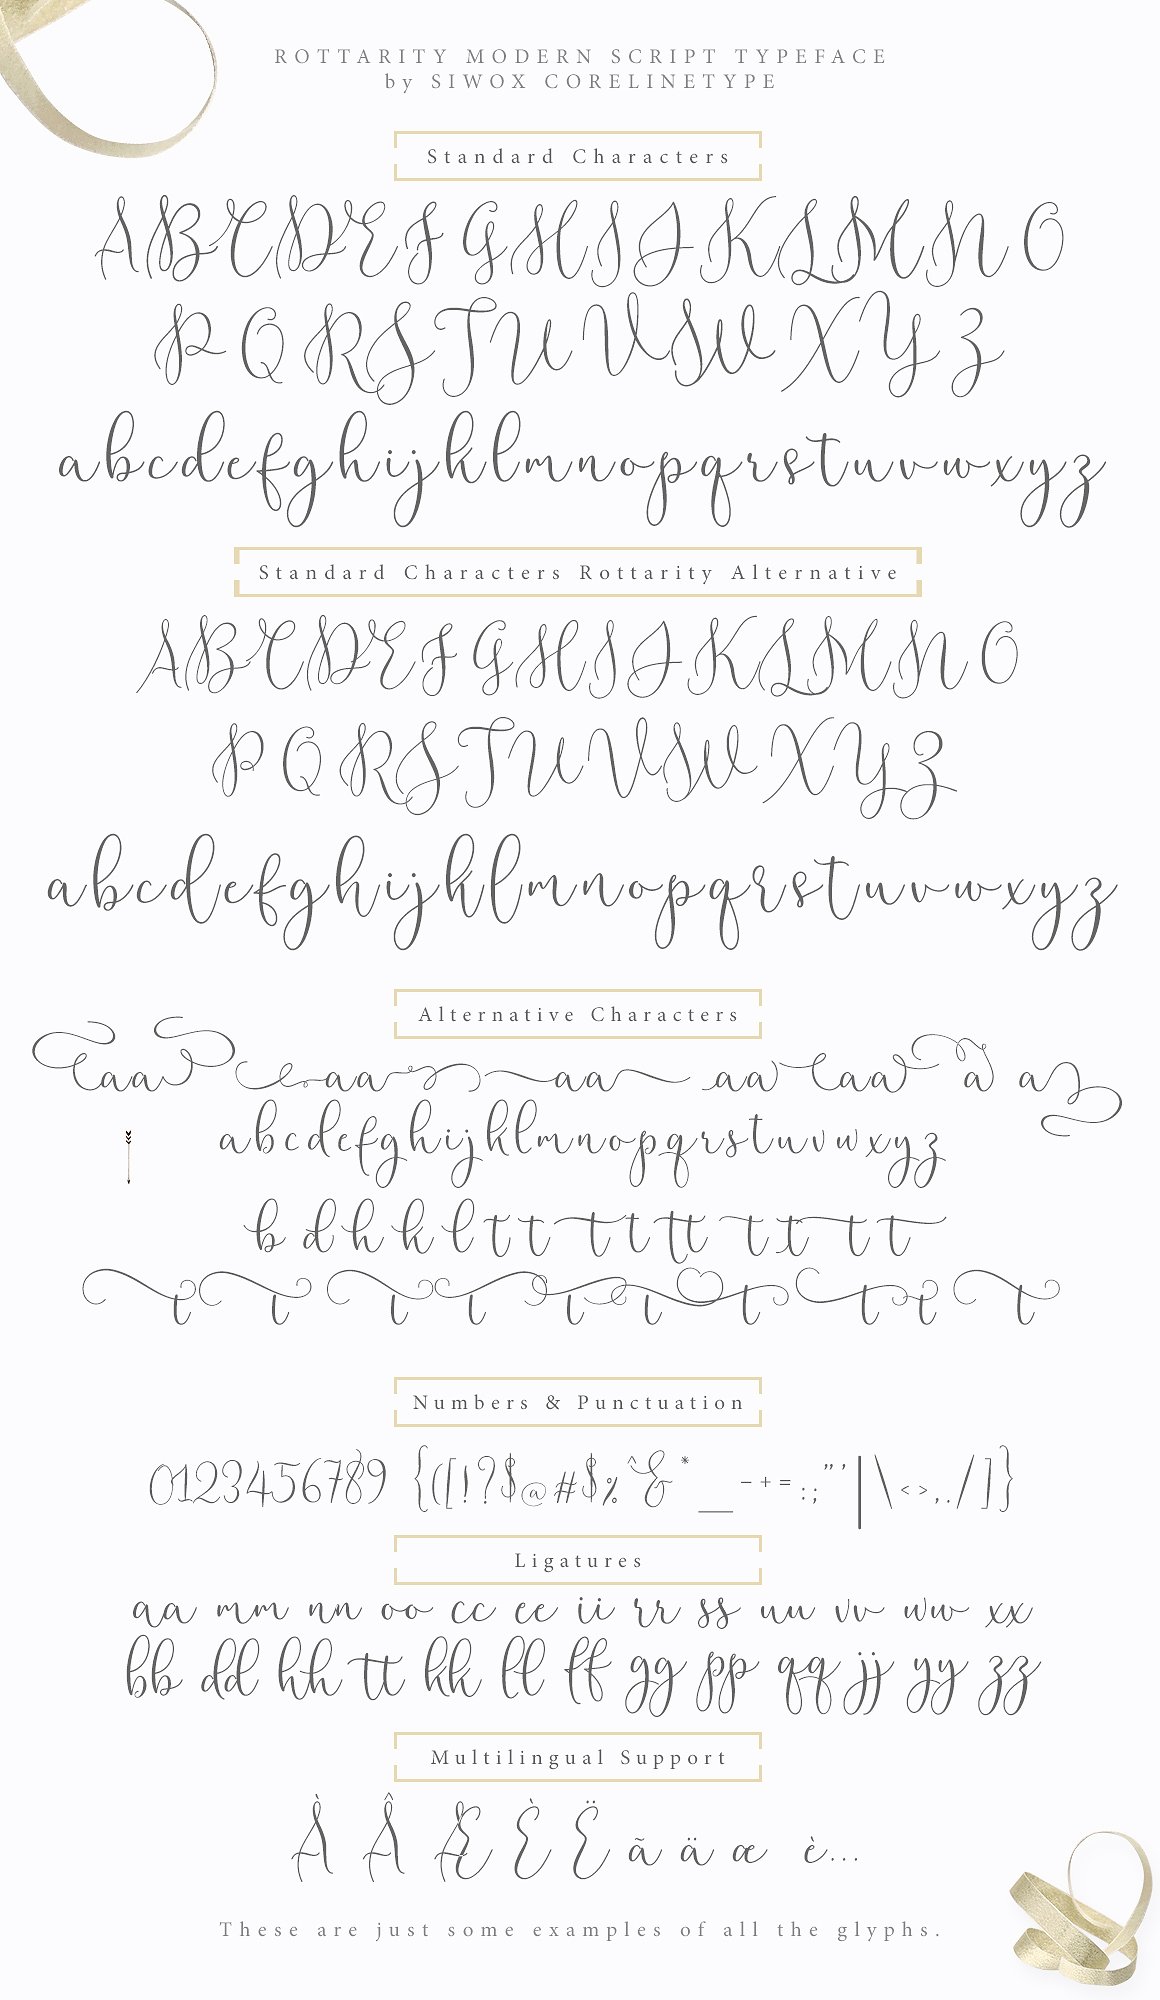 ROTTARITY MODERN SCRIPT TYPEFACE
by SIWOX CORELINETYPE
Standard Characters
A B C D E F G H I J K L M N O
P Q R S T U V W X Y Z
a b c d e f g h i j k l m n o p q r s t u v w x y z
Standard Characters Rottarity Alternative
A B C D E F G H I J K L M N O
P Q R S T U V W X Y Z
a b c d e f g h i j k l m n o p q r s t u v w x y z
Alternative Characters
aa aa aa aa aa a a
a b c d e f g h i j k l m n o p q r s t u v w x y z
b d h k l t t t t tt t t t t
t t t t t t t t t t
Numbers & Punctuation
0123456789 {([!?$@#$%^&*_-+=:;"'|\<>,./]}
Ligatures
aa mm nn oo cc ee ii rr ss uu vv ww xx
bb dd hh tt kk ll ff gg pp qq jj yy zz
Multilingual Support
À Â Æ È Ë ã ä æ è...
These are just some examples of all the glyphs.